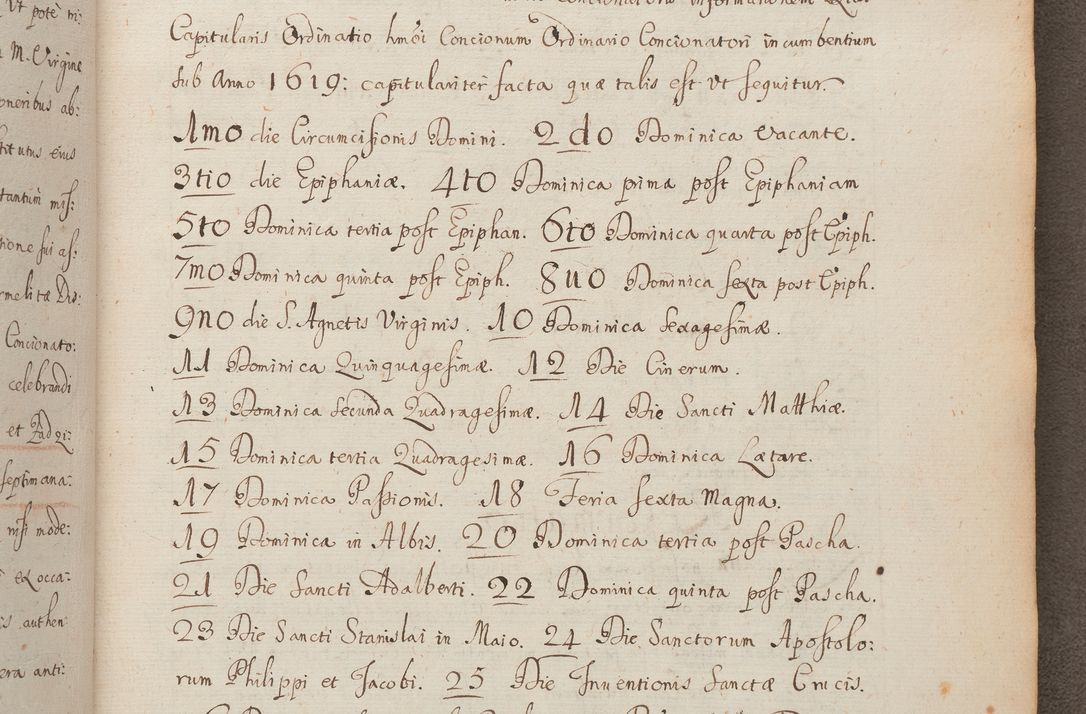 Vt potè
M. Virgine
oneribus ab:
titutus eius
tantùm mis:
tione sui as:
rmelitæ Dis:
Concionato:
celebrandi
et
septimana:
nisi mode:
ex occa:
authen
era anti:
Capitularis Ordinatio hmõi Concionum Ordinario Concionatori incumbentium
sub Anno 1619: capitulariter facta quæ talis est Vt sequitur.
1mo die Circumcisionis Domini. 2do Dominica Vacante.
3tio die Epiphaniæ. 4to Dominica prima post Epiphaniam
5to Dominica tertia post Epiphan. 6to Dominica quarta post Epiph.
7mo Dominica quinta post Epiph. 8uo Dominica sexta post Epiph.
9no die S. Agnetis Virginis. 10 Dominica sexagesimæ.
11 Dominica Quinquagesimæ. 12 Die Cinerum.
13 Dominica secunda Quadragesimæ. 14 Die Sancti Matthiæ.
15 Dominica tertia Quadragesimæ. 16 Dominica Lætare.
17 Dominica Passionis. 18 Feria sexta Magna.
19 Dominica in Albis. 20 Dominica tertia post Pascha.
21 Die Sancti Adalberti. 22 Dominica quinta post Pascha.
23 Die Sancti Stanislai in Maio. 24 Die Sanctorum Apostolo:
rum Philippi et Jacobi. 25 Die Inventionis Sanctæ Crucis.